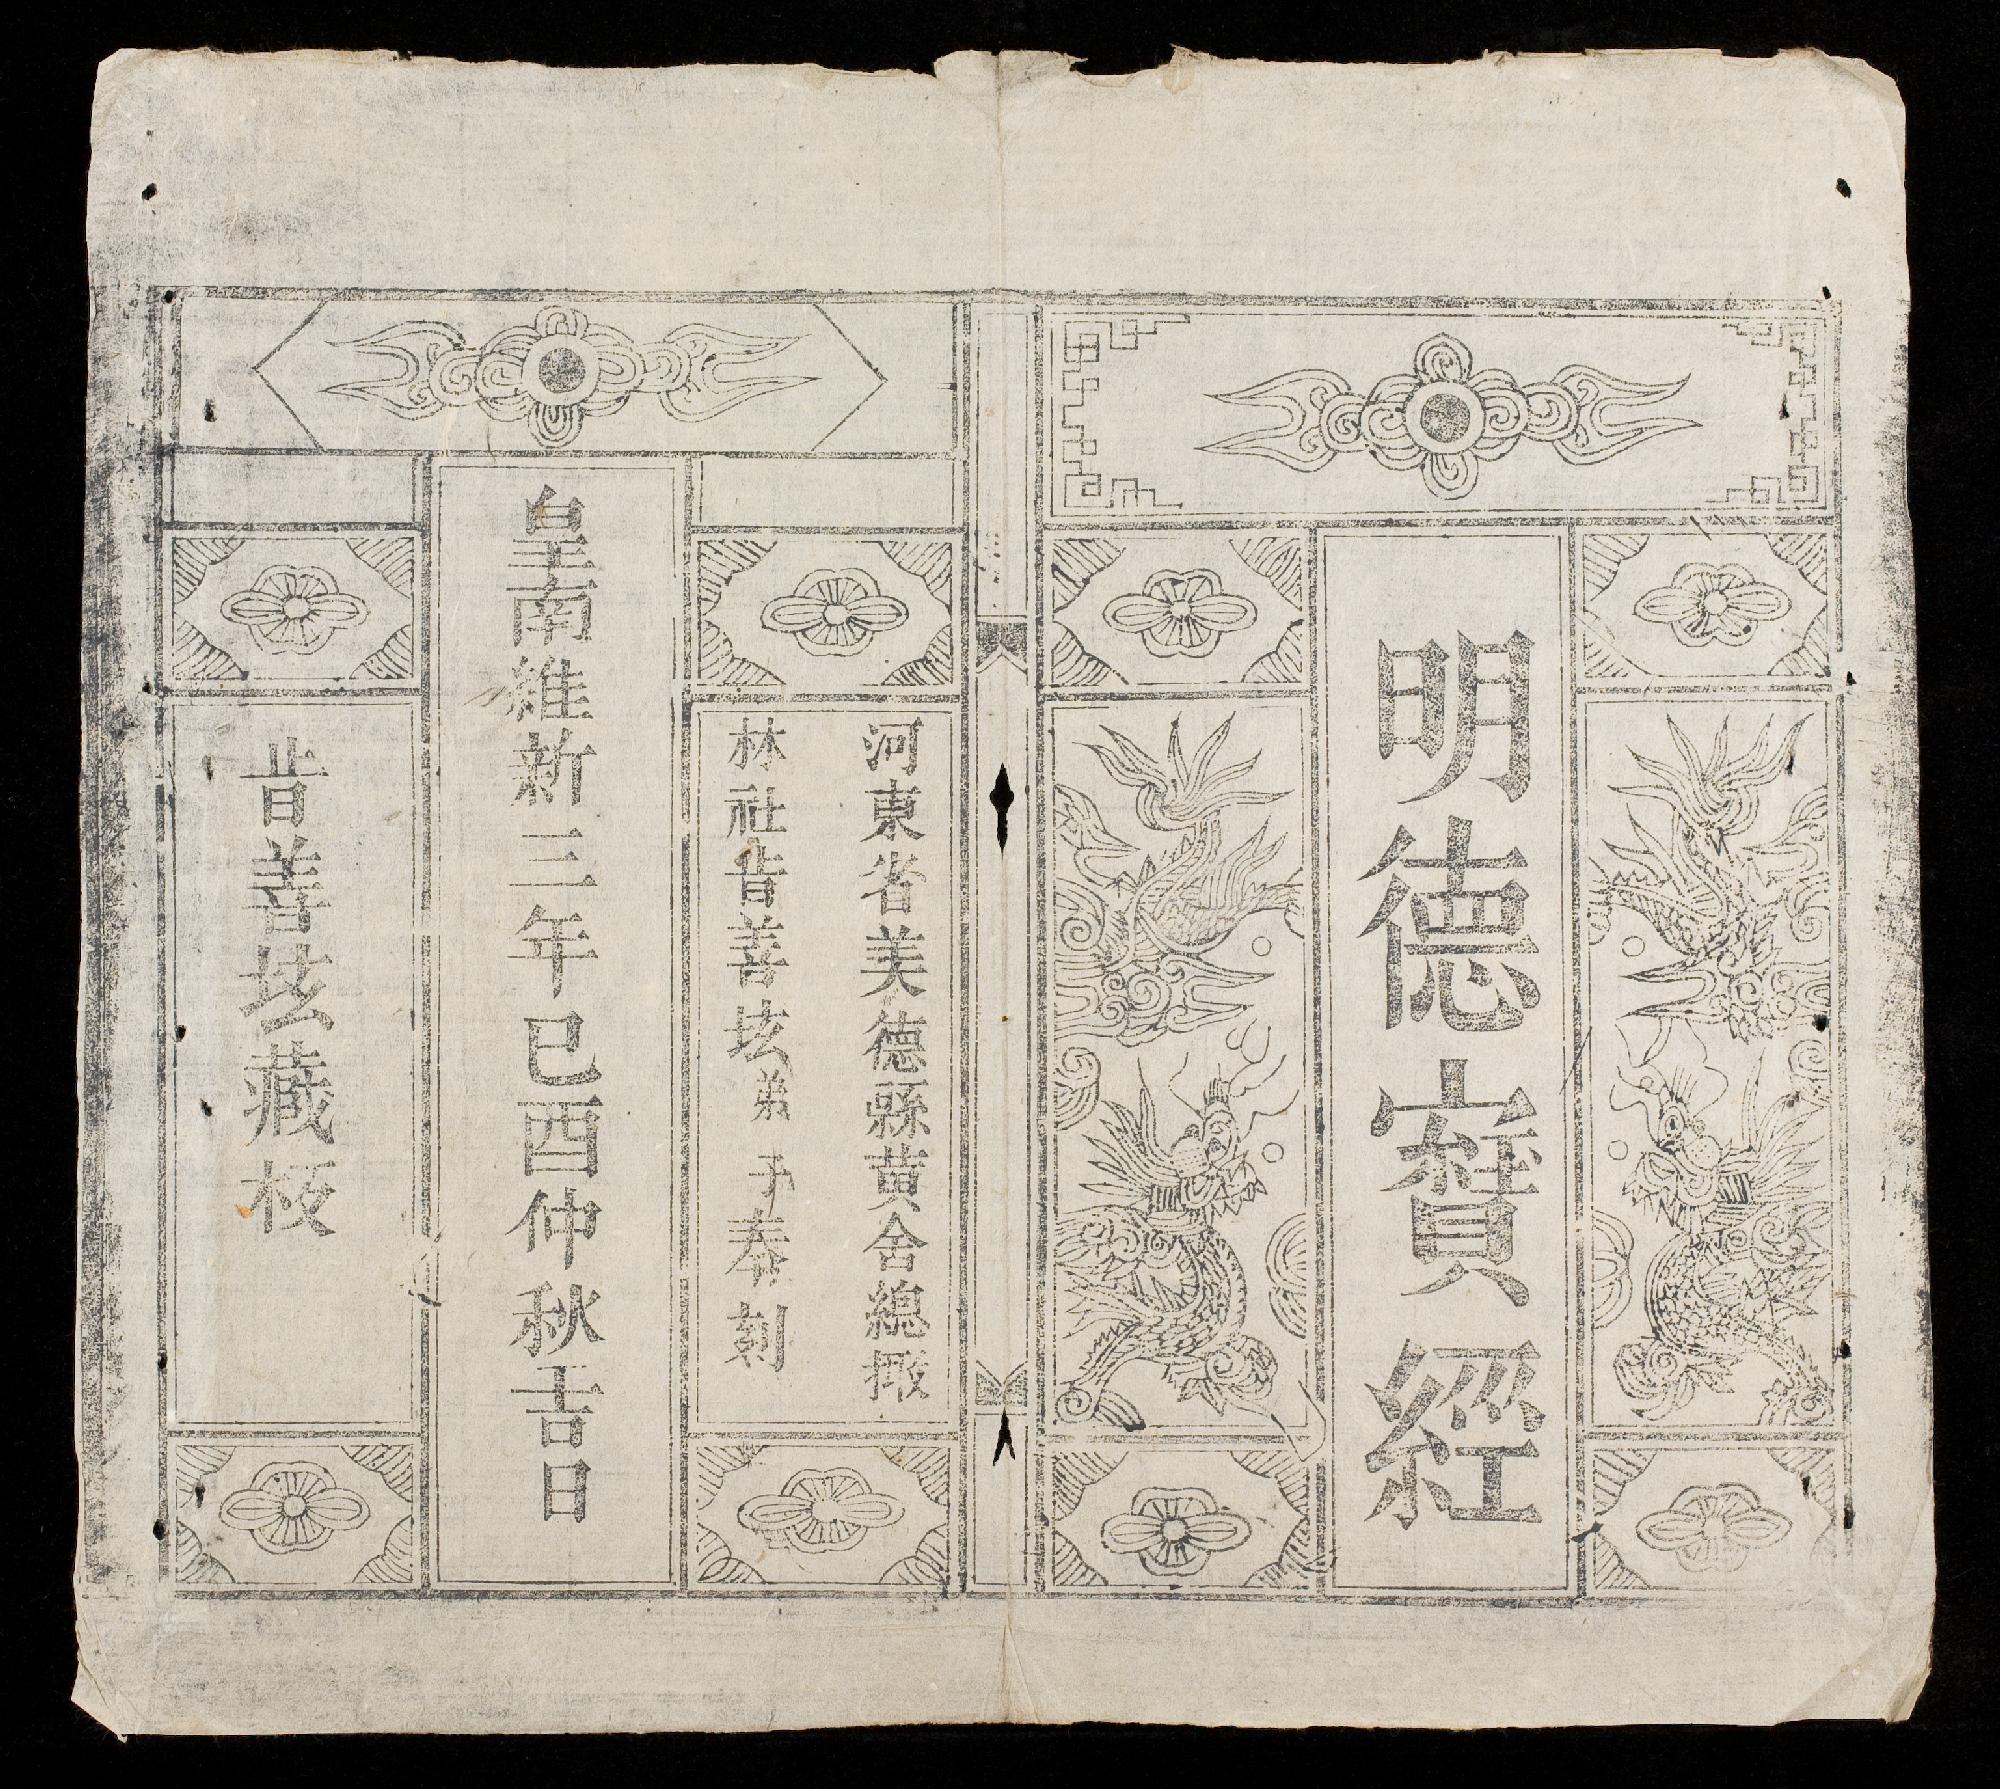 明德寶經
河東省美德縣黄舍總撖
林社㫖善坛弟子奉刻
皇南維新三年己酉仲秋吉日
㫖善坛藏板